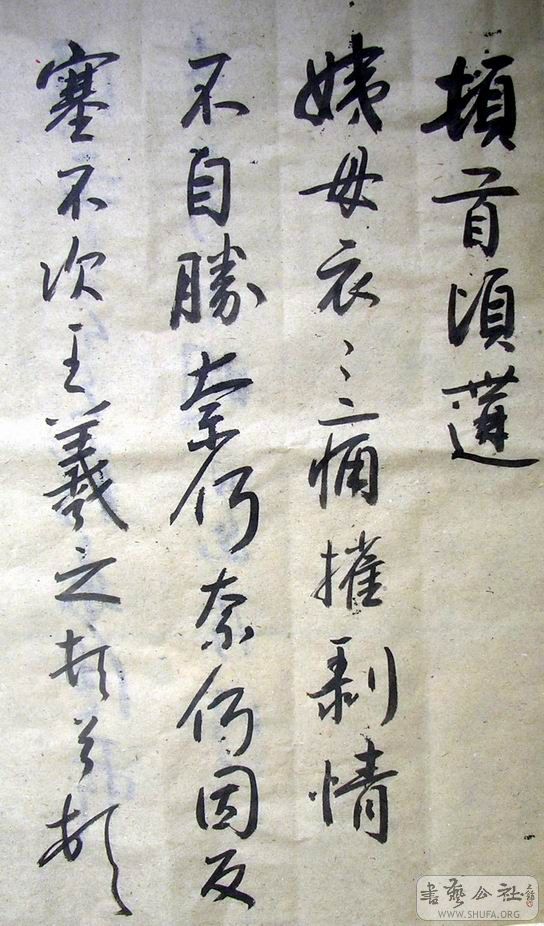 頓首頃遘
姨母哀〻痛摧剝情
不自勝奈何奈何因反
塞不次王羲之頓首頓
書藝公社
WWW.SHUFA.ORG